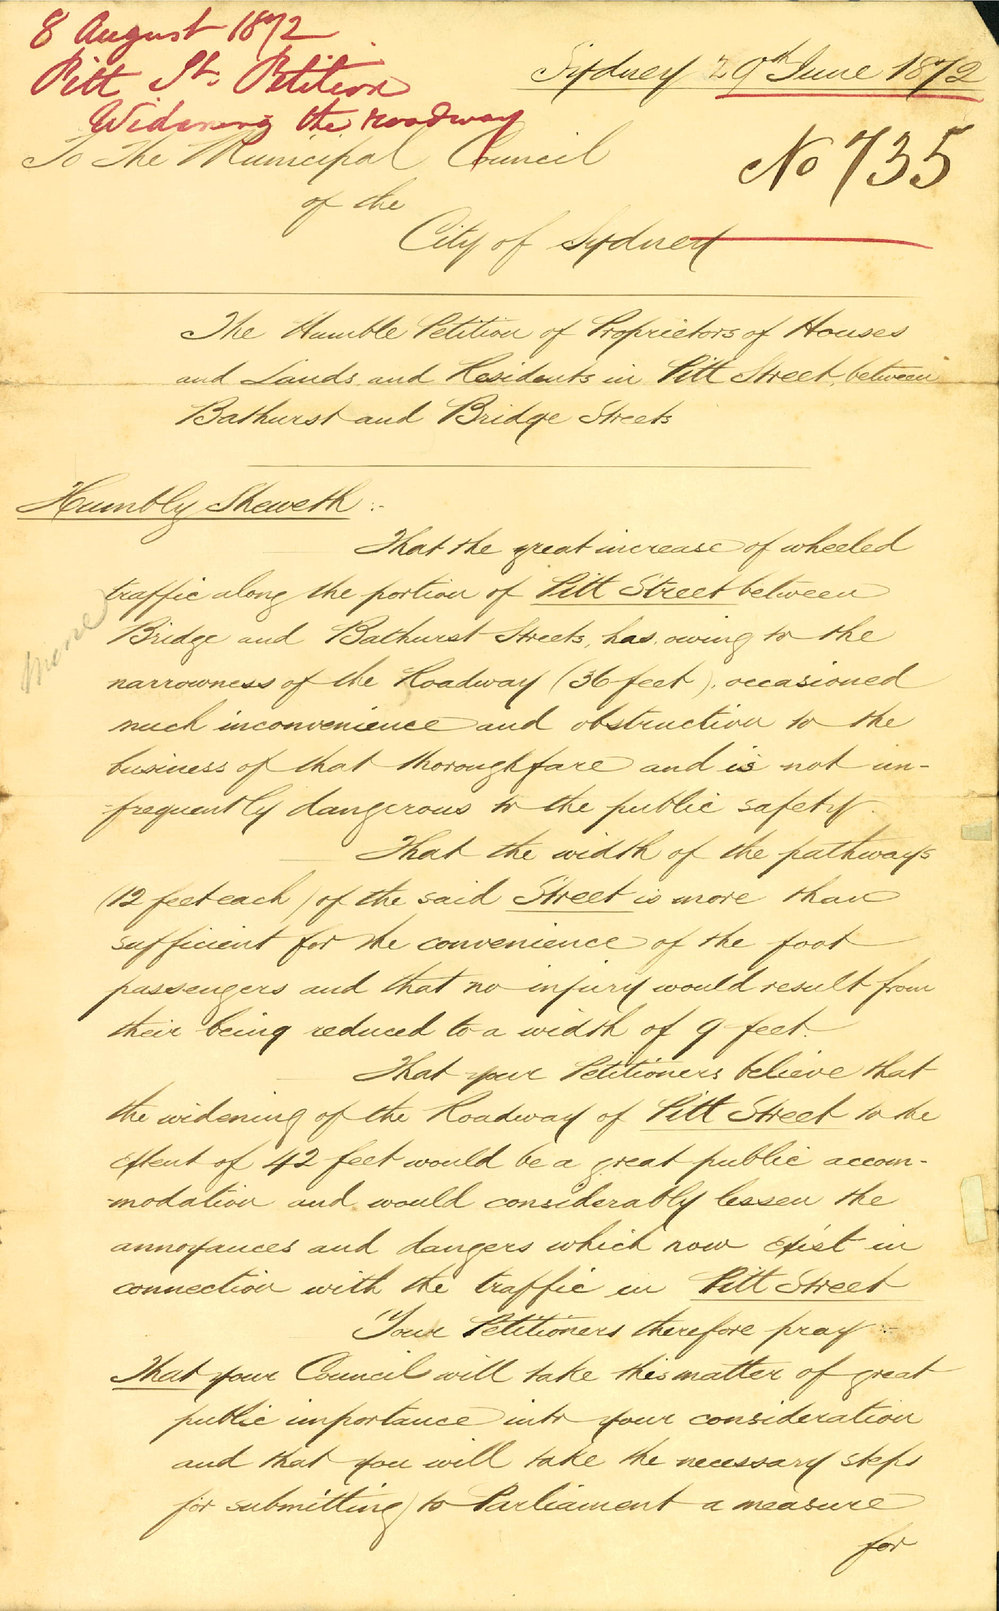 8 August 1872
Pitt St. Petition
Widening the roadway
Sydney 29th June 1872
No 735
To The Municipal Council
of the
City of Sydney
The Humble Petition of Proprietors of Houses
and Lands and Residents in Pitt Street, between
Bathurst and Bridge Streets
Humbly Sheweth :-
That the great increase of wheeled
traffic along the portion of Pitt Street between
Bridge and Bathurst Streets, has, owing to the
narrowness of the Roadway (36 feet), occasioned
much inconvenience and obstruction to the
business of that thoroughfare and is not un-
-frequently dangerous to the public safety.
That the width of the pathways
(12 feet each) of the said Street is more than
sufficient for the convenience of the foot
passengers and that no injury would result from
their being reduced to a width of 9 feet.
That your Petitioners believe that
the widening of the Roadway of Pitt Street to the
extent of 42 feet would be a great public accom-
-modation and would considerably lessen the
annoyances and dangers which now exist in
connection with the traffic in Pitt Street
Your Petitioners therefore pray :-
That your Council will take this matter of great
public importance into your consideration
and that you will take the necessary steps
for submitting to Parliament a measure
for